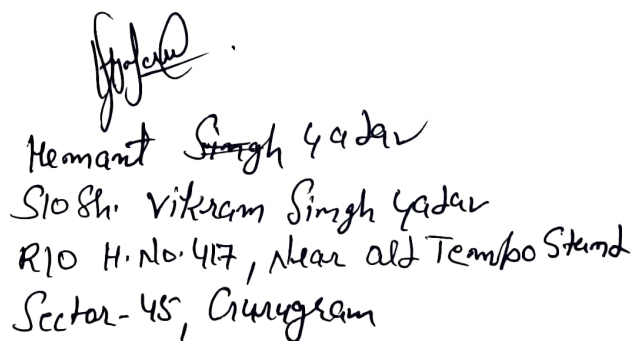 Hemant Singh Yadav
S/o Sh. Vikram Singh Yadav
R/o H.No. 417, Near old Tempo Stand
Sector-45, Gurugram